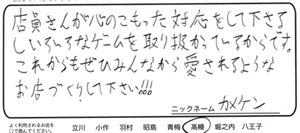 店員さんが心のこもった対応をして下さる
しいろいろなゲームを取り扱かっているからです。
これからもぜひみんなから愛されるような
お店づくりして下さい!!!
ニックネーム カメケン
よく利用されるお店を
○で囲んでください。
立川 小作 羽村 昭島 青梅 高幡 堀之内 八王子